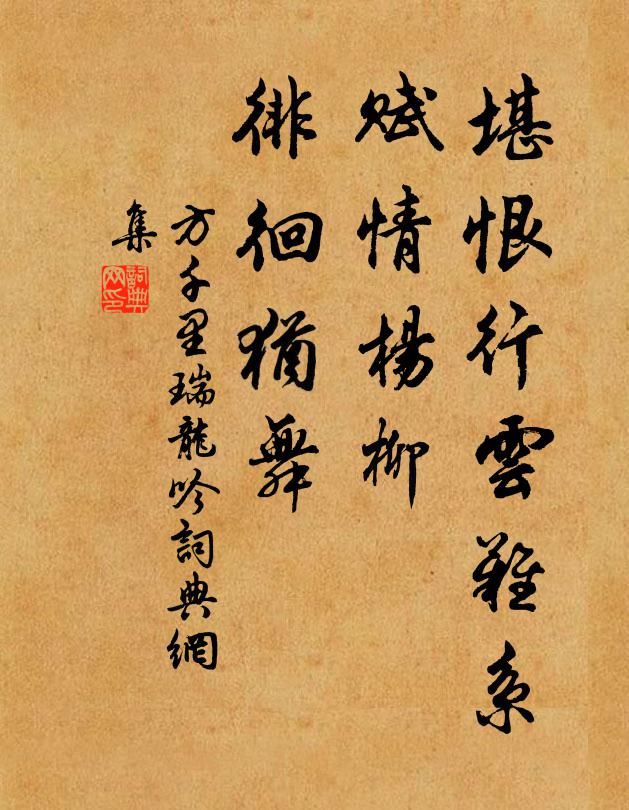 堪恨行雲難系
賦情楊柳
徘徊猶舞
方千里瑞龍吟詞典網
集
詞典網印